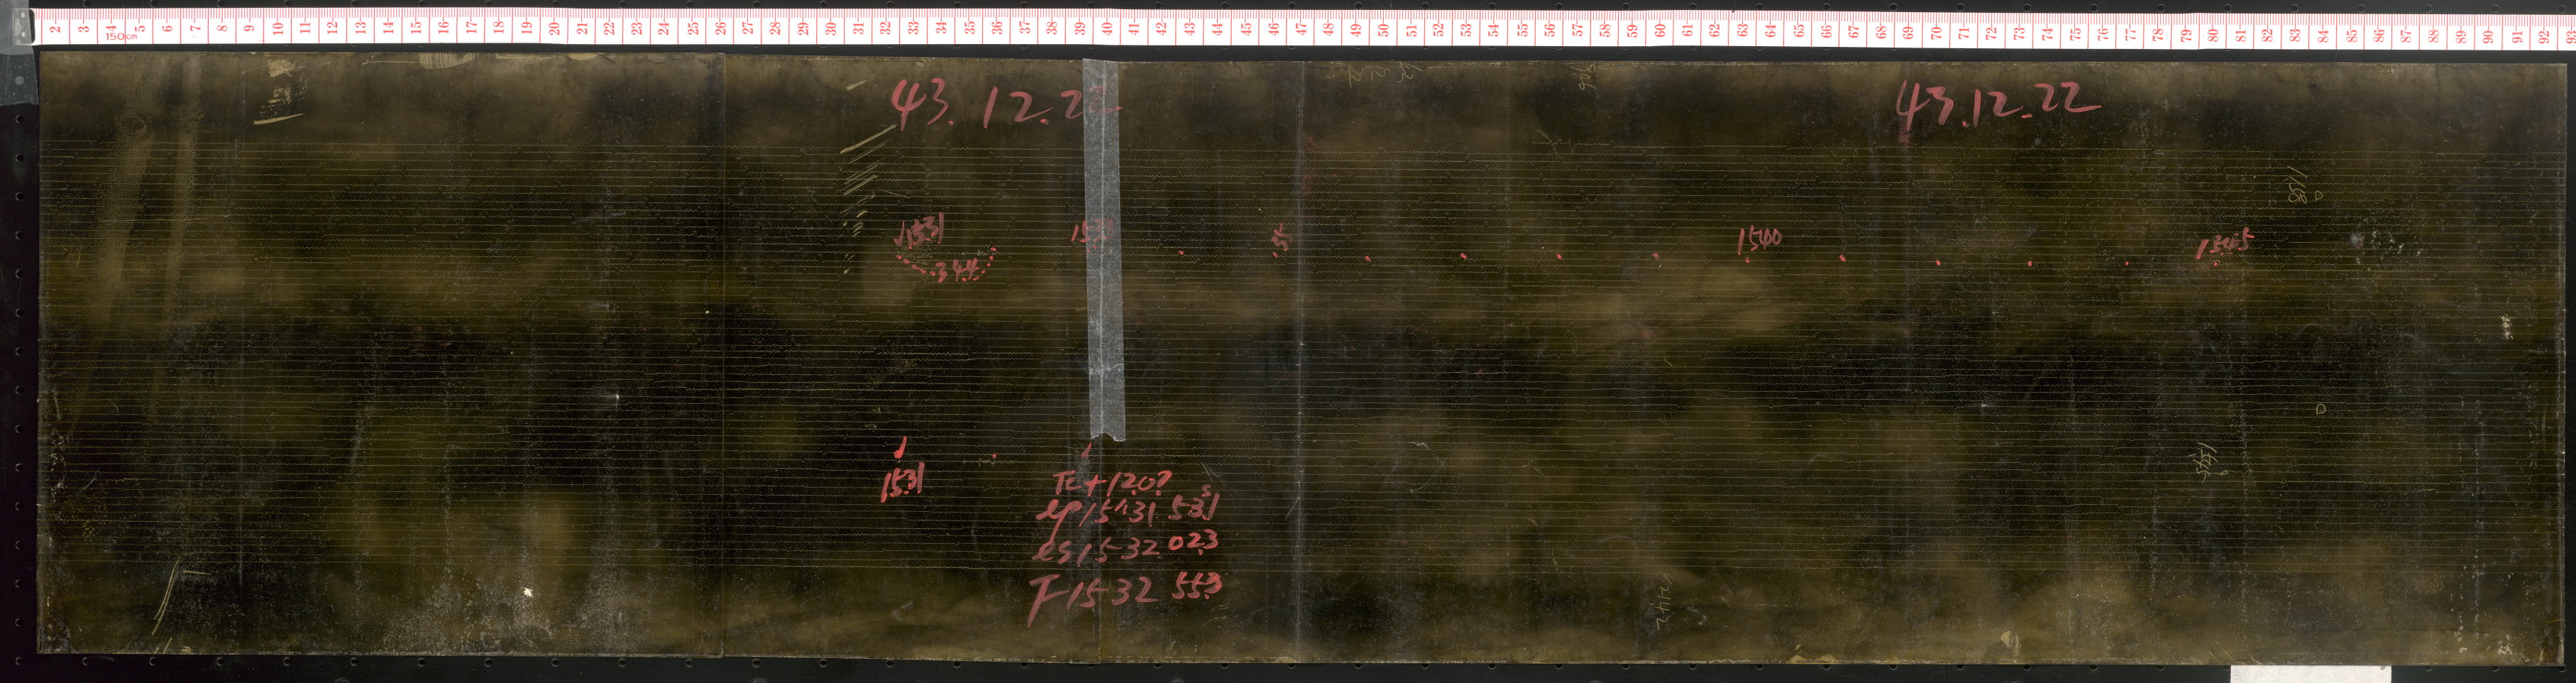 2 3 4 5 6 7 8 9 10 11 12 13 14 15 16 17 18 19 20 21 22 23 24 25 26 27 28 29 30 31 32 33 34 35 36 37 38 39 40 41 42 43 44 45 46 47 48 49 50 51 52 53 54 55 56 57 58 59 60 61 62 63 64 65 66 67 68 69 70 71 72 73 74 75 76 77 78 79 80 81 82 83 84 85 86 87 88 89 90 91 92 93
150cm
43.12.22
43.12.22
1531
1540
1545
344
1531
Tc+120?
ep 15h31 53.1s
es 15-32 02.3
F 15-32 55.3